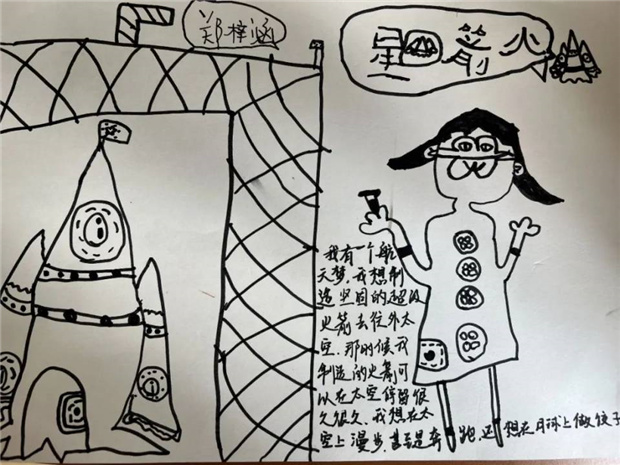 郑梓涵
星 箭火
我有一个航
天梦，我想制
造坚固的超级
火箭去往外太
空，那时候我
制造的火箭可
以在太空停留很
久很久，我想在太
空上漫步，甚至是奔跑，还想在月球上做饺子